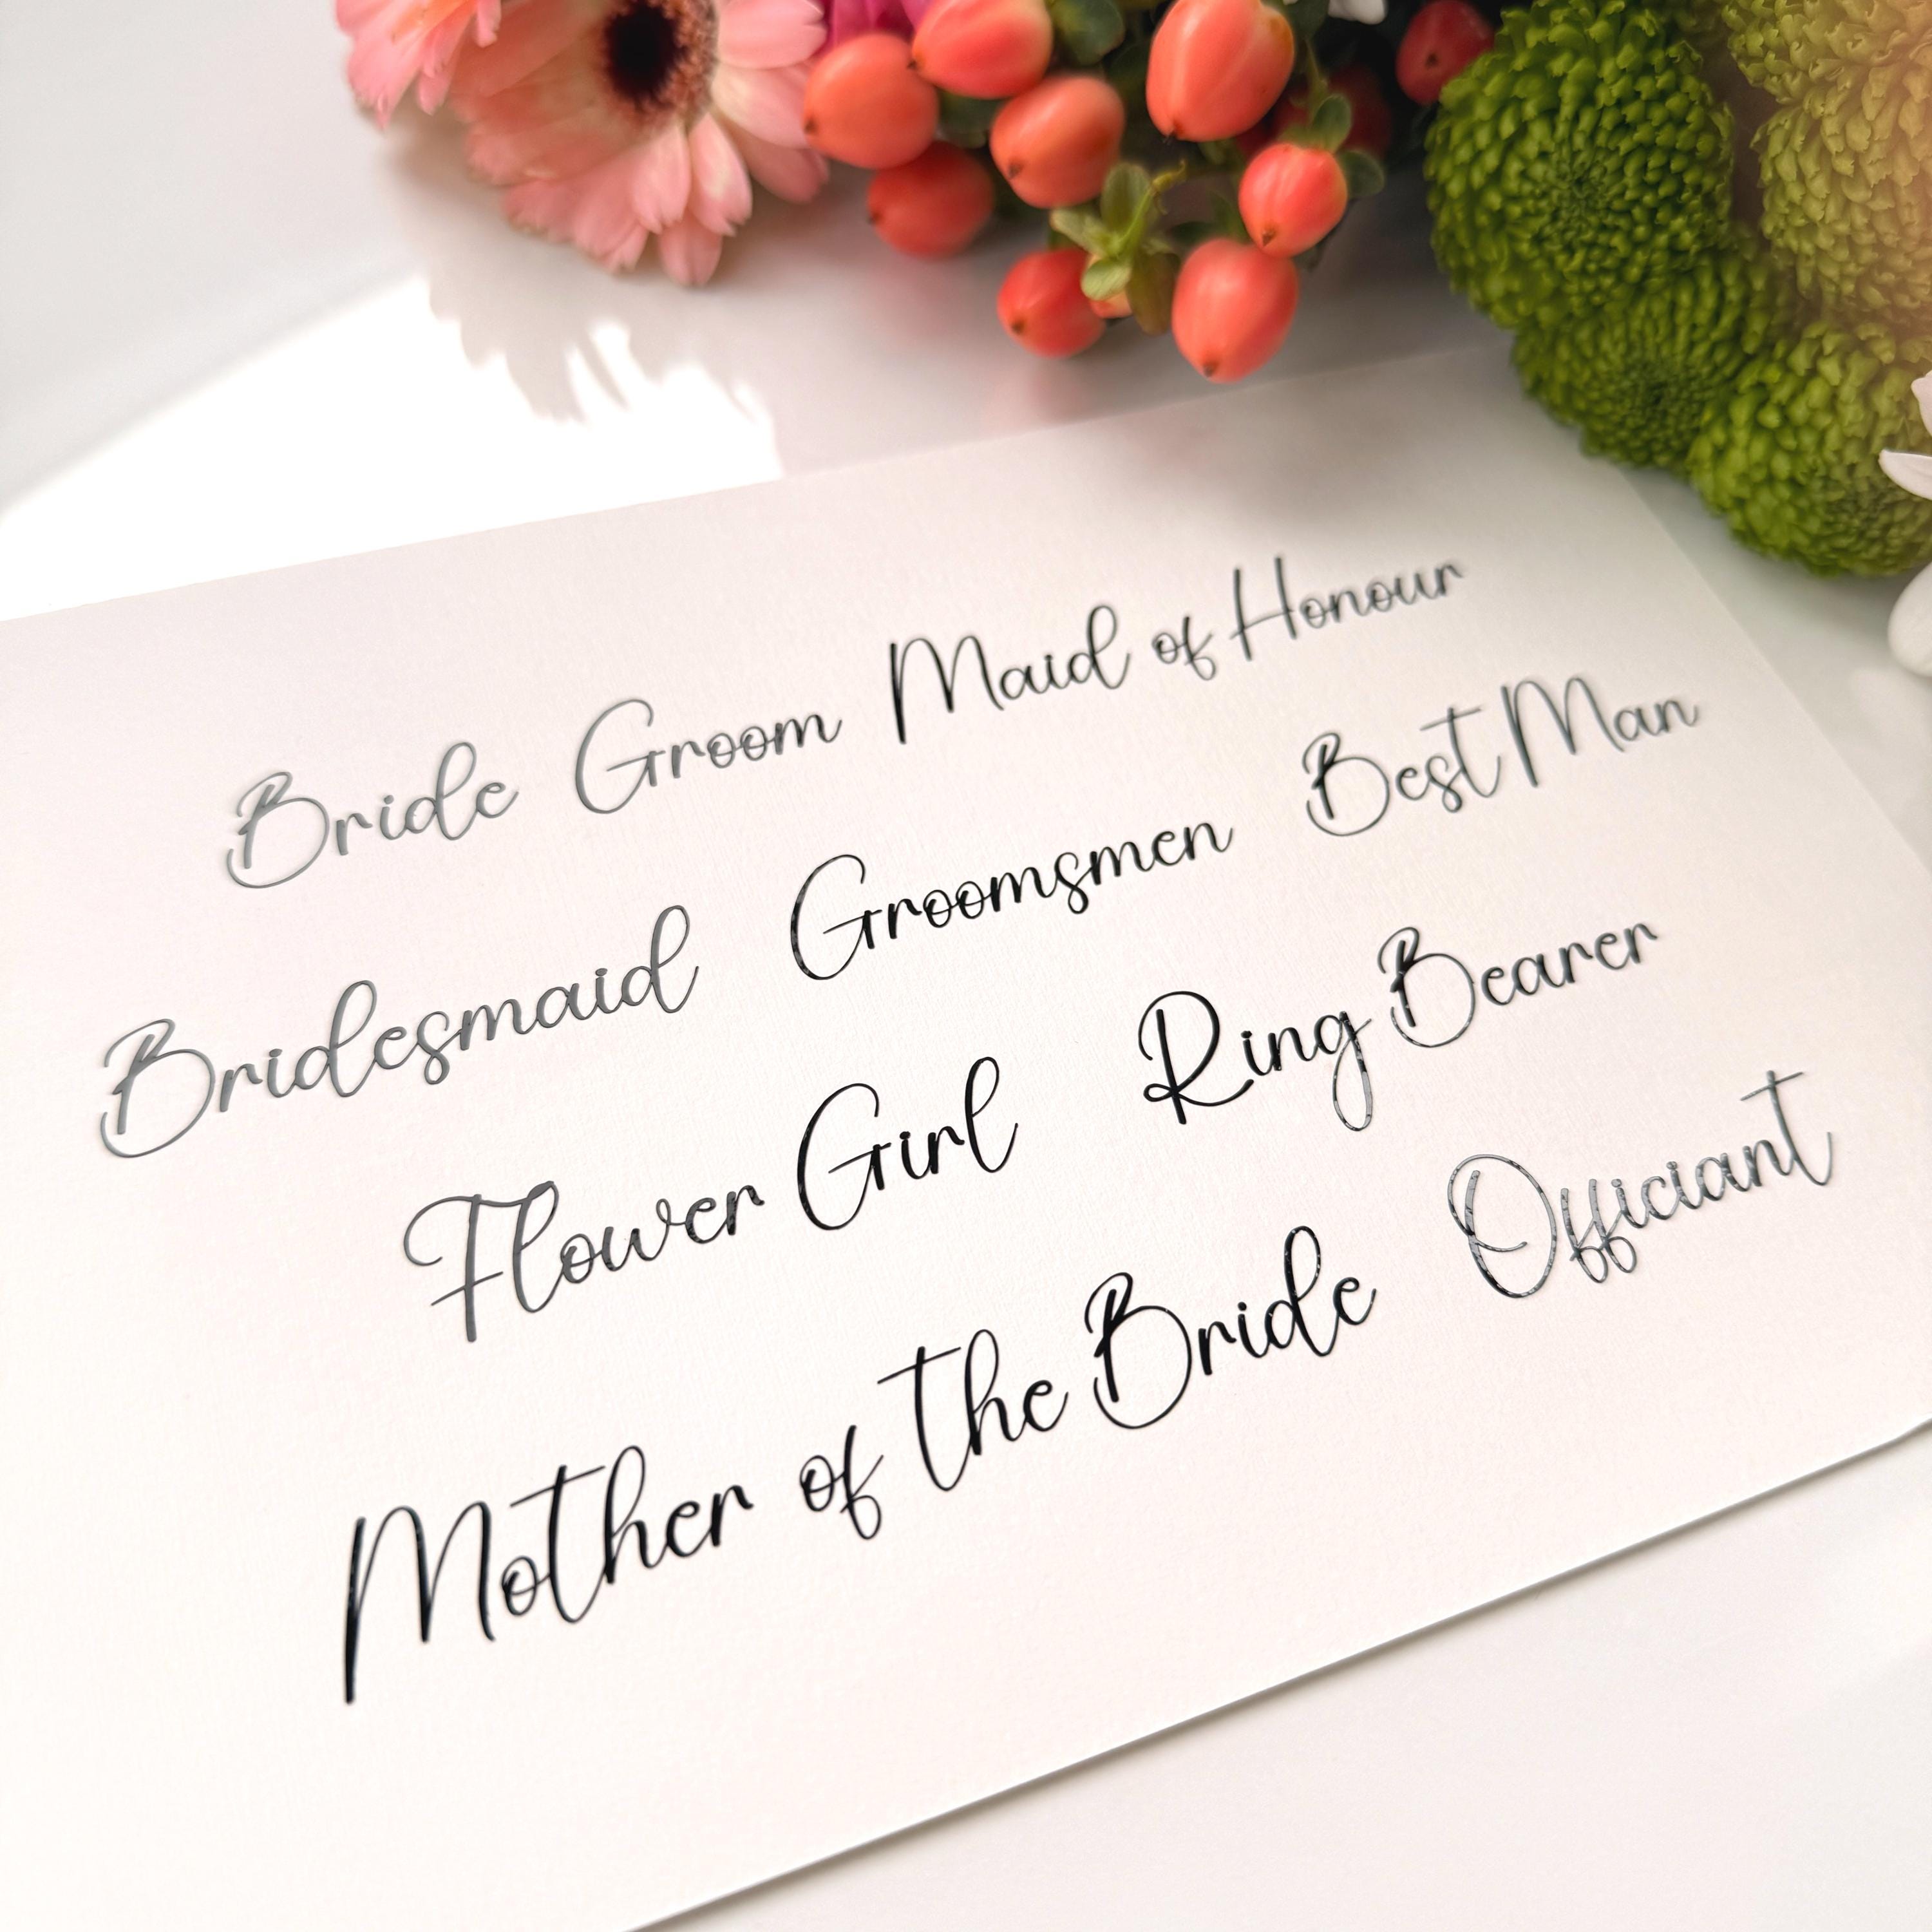 Bride Groom Maid of Honour
Bridesmaid Groomsmen Best Man
Flower Girl Ring Bearer
Mother of the Bride Officiant